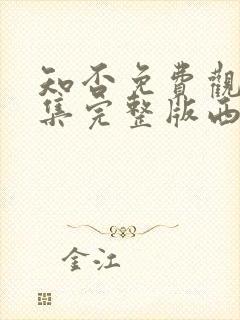 知否免費觀
集完整版西
金江